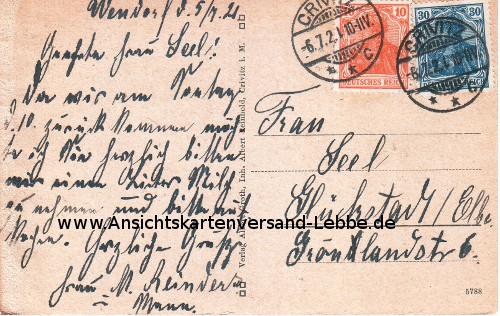 Wendorf d. 5/7.21
Geehrte Frau Seel!
Da wir am Sonntag
d. 10. zurück kommen möch
te ich Sie herzlich bitten
mir einen Liter Milch
zu nehmen und bitte zu
kochen. Herzliche Grüße
Frau M. Reinders
u. Mann.
CRIVITZ
-6.7.21.10-11V.
* * C
10
DEUTSCHES REICH
CRIVITZ
-6.7.21.10-11V.
* * C
30 30
Frau
Seel
Glückstadt/Elbe
Grönlandstr 6.
Inh. Albert Reinhold, Crivitz i. M.
5788
www.Ansichtskartenversand-Lebbe.de